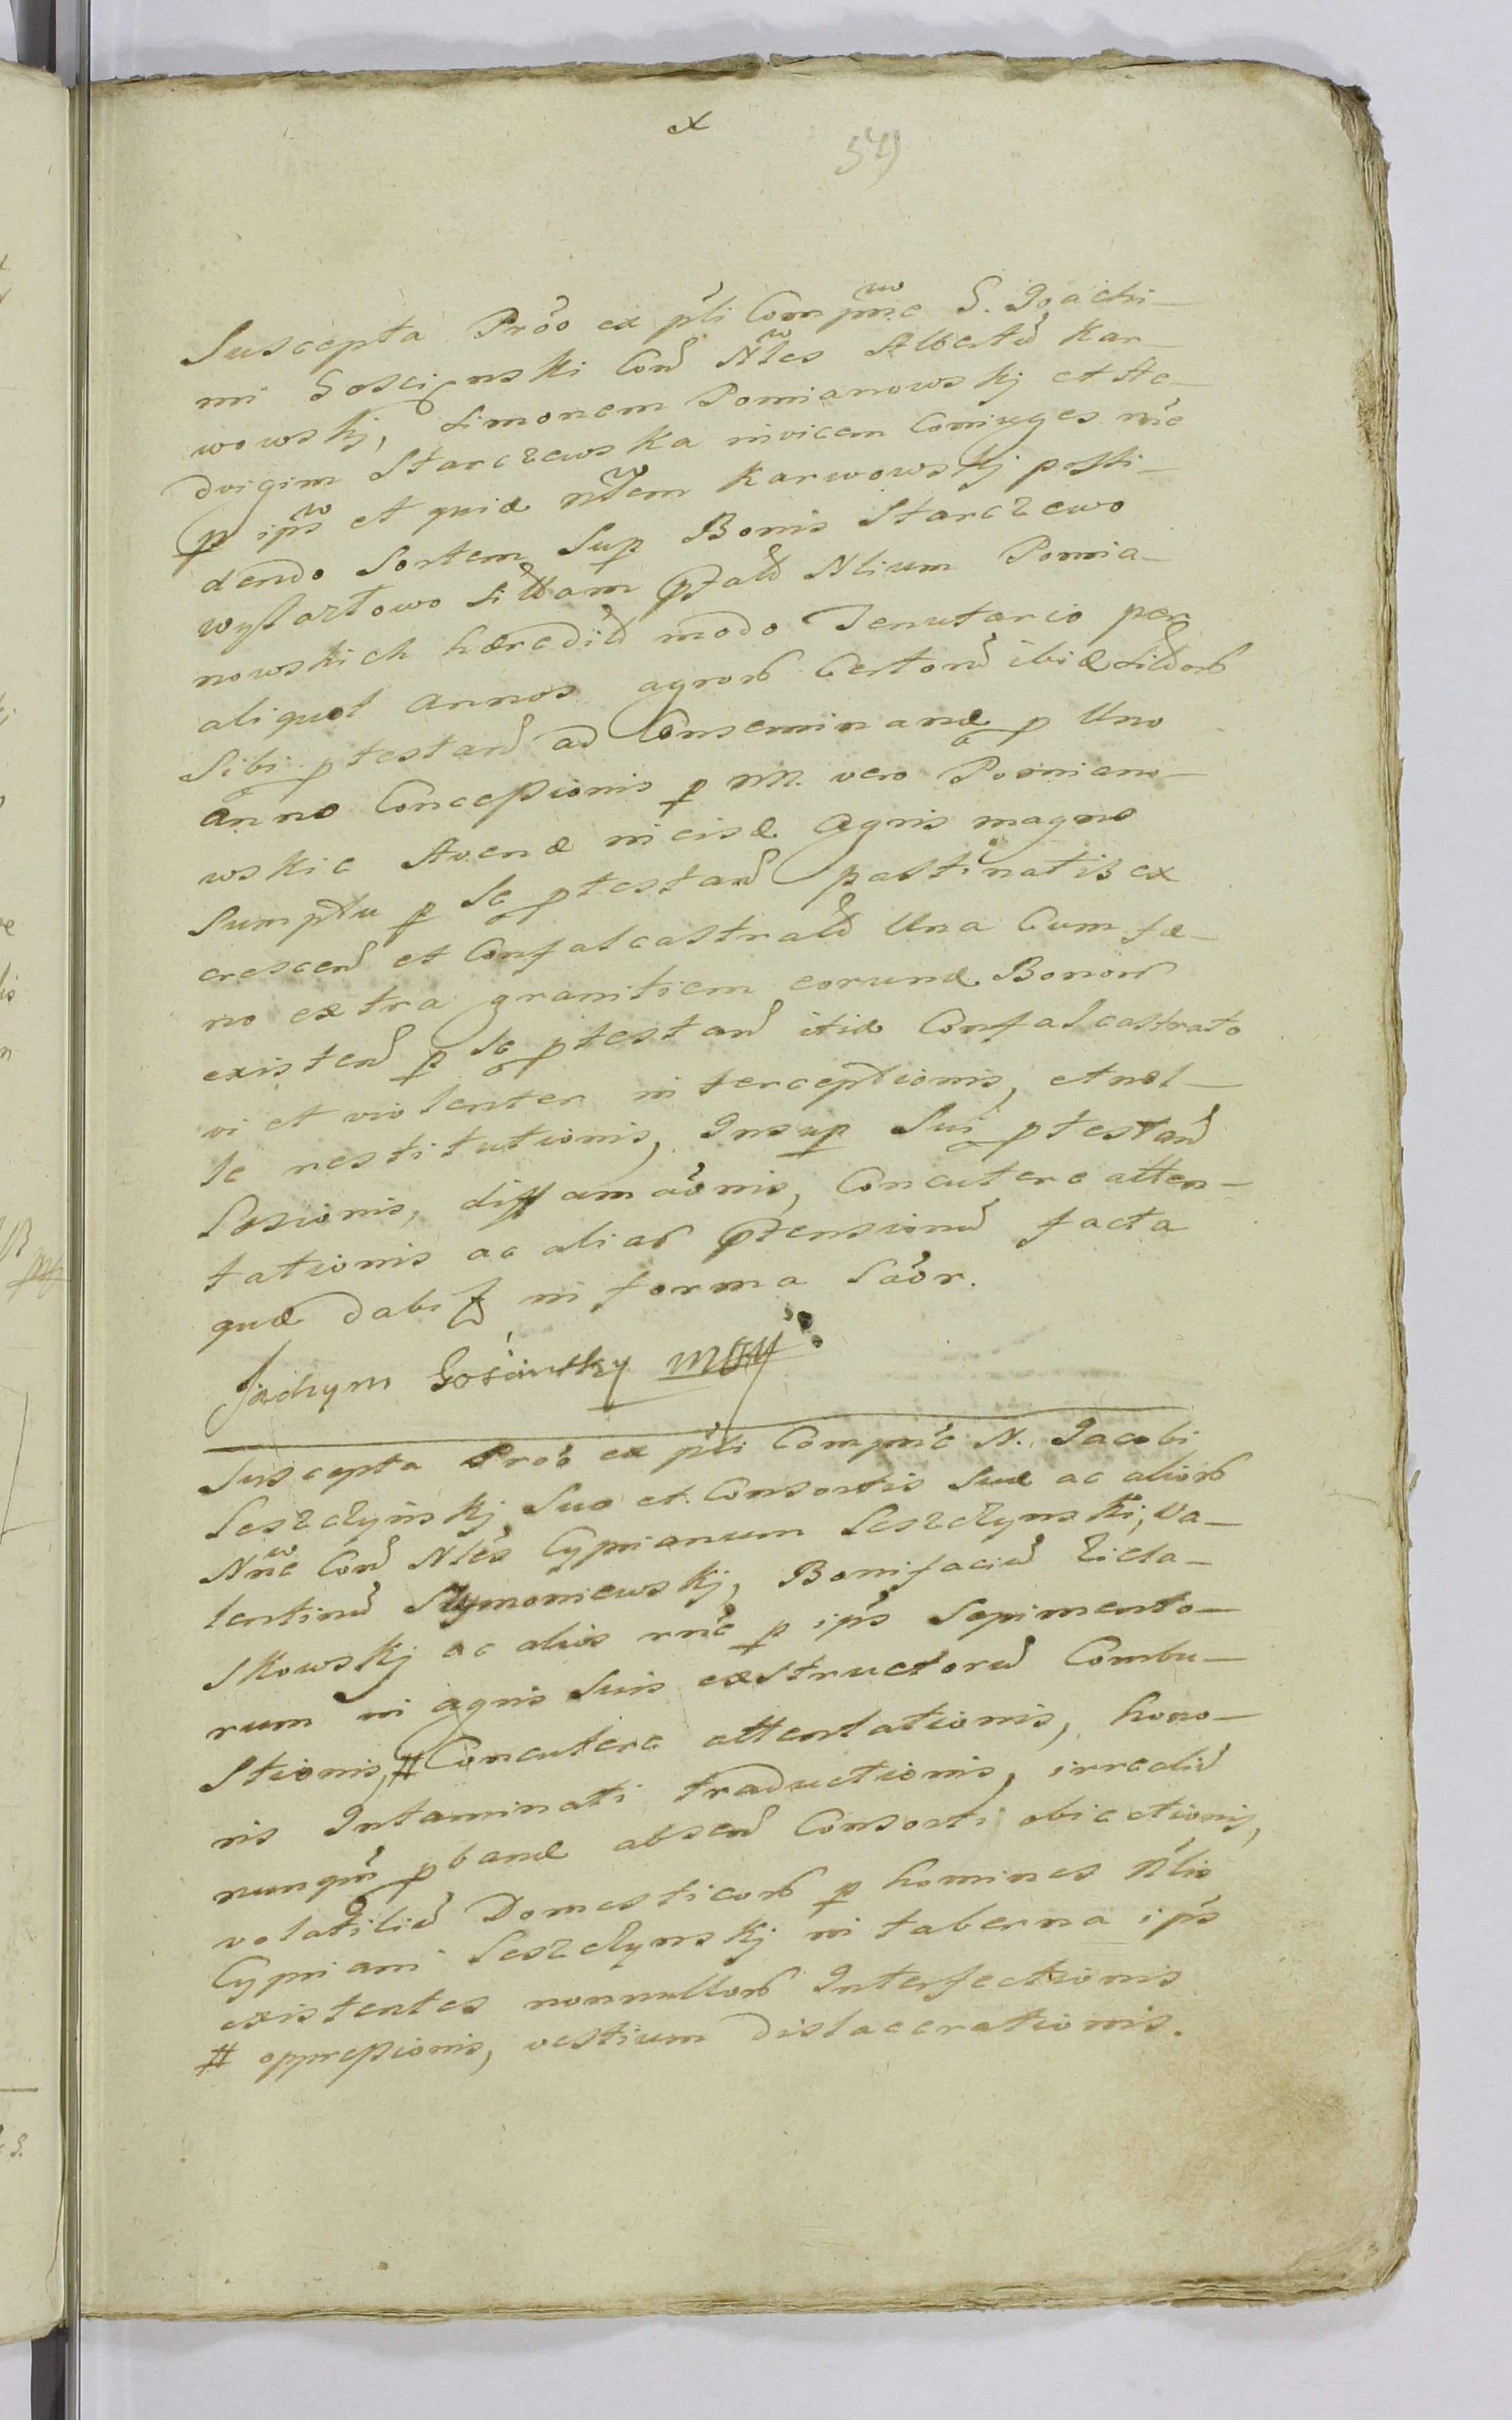 x
54
Suscepta Prõo ex płi Compñe G. Joachi-
mi Gosciński Coñ Nłes Albertũ Kar-
wowskj, Simonem Pomianowskj et He-
dvigim Starczewska invicem Coniuges rñe
p ipõs et quid Nłem Karwowskj possi-
dendo Sortem Sup Bonis Starczewo
sitam Nlium Pomia-
nowskich hæredũ modo Tenutario per
aliquot annos agrorũ Certorũ ibid
Sibi ptestañ ad Conseminand p Uno
anno Concessionis p NN. vero Pomiano-
wskie Avenæ in eisd agris magno
Sumptu p se ptestañ pastinatis ex
crescen et Confalcastrat Una Cum fæ-
no extra granitiem eorund Bonorũ
existen p se ptestañ itid Confalcastrato
vi et violenter interceptionis, et nol-
le restitutionis, Insup Sui ptestañ
Læsionis, diffamaõnis, Concutere atten-
tationis ac aliarũ ptensionũ facta
quæ dabit in forma Laõr.
Jachym Gosciński mp
Suscepta Prõo ex płi Compñe N. Jacobi
Leszczyńskj Suo et Consortis Suæ ac aliorũ
Nñe Coñ Nłes Cyprianum Leszczynski, Va-
lentinũ Szymoniewskj, Bonifaciũ Ziela-
skowskj ac alios rñe p ipõs Sepimento-
rum in agris Suis exstructorũ Combu-
stionis, # Concutere attentationis, hono-
ris Intaminati traductionis, irrealiũ
nunqm pband absen Consorti obiectionis,
volatiliũ Domesticorũ p homines Nłis
Cypriani Leszczynskj in taberna ipõs
existentes nonnullorũ Interfectionis
# oppressionis, vestium dislacerationis.